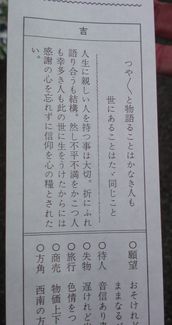 吉
つや〳〵と物語ることはかなき人も
世にあることはたゞ同じこと
人生に親しい人を持つ事は大切。折にふれ
語り合うも結構。然し不平不満をかこつ人
も幸多き人も此の世に生をうけたからには
感謝の心を忘れずに信仰を心の糧とされた
い。
○願望 おそけれど
ままなる
○待人 音信あり
○失物 遅けれど
○旅行 色情をつ
○商売 物価上下
○方角 西南の方